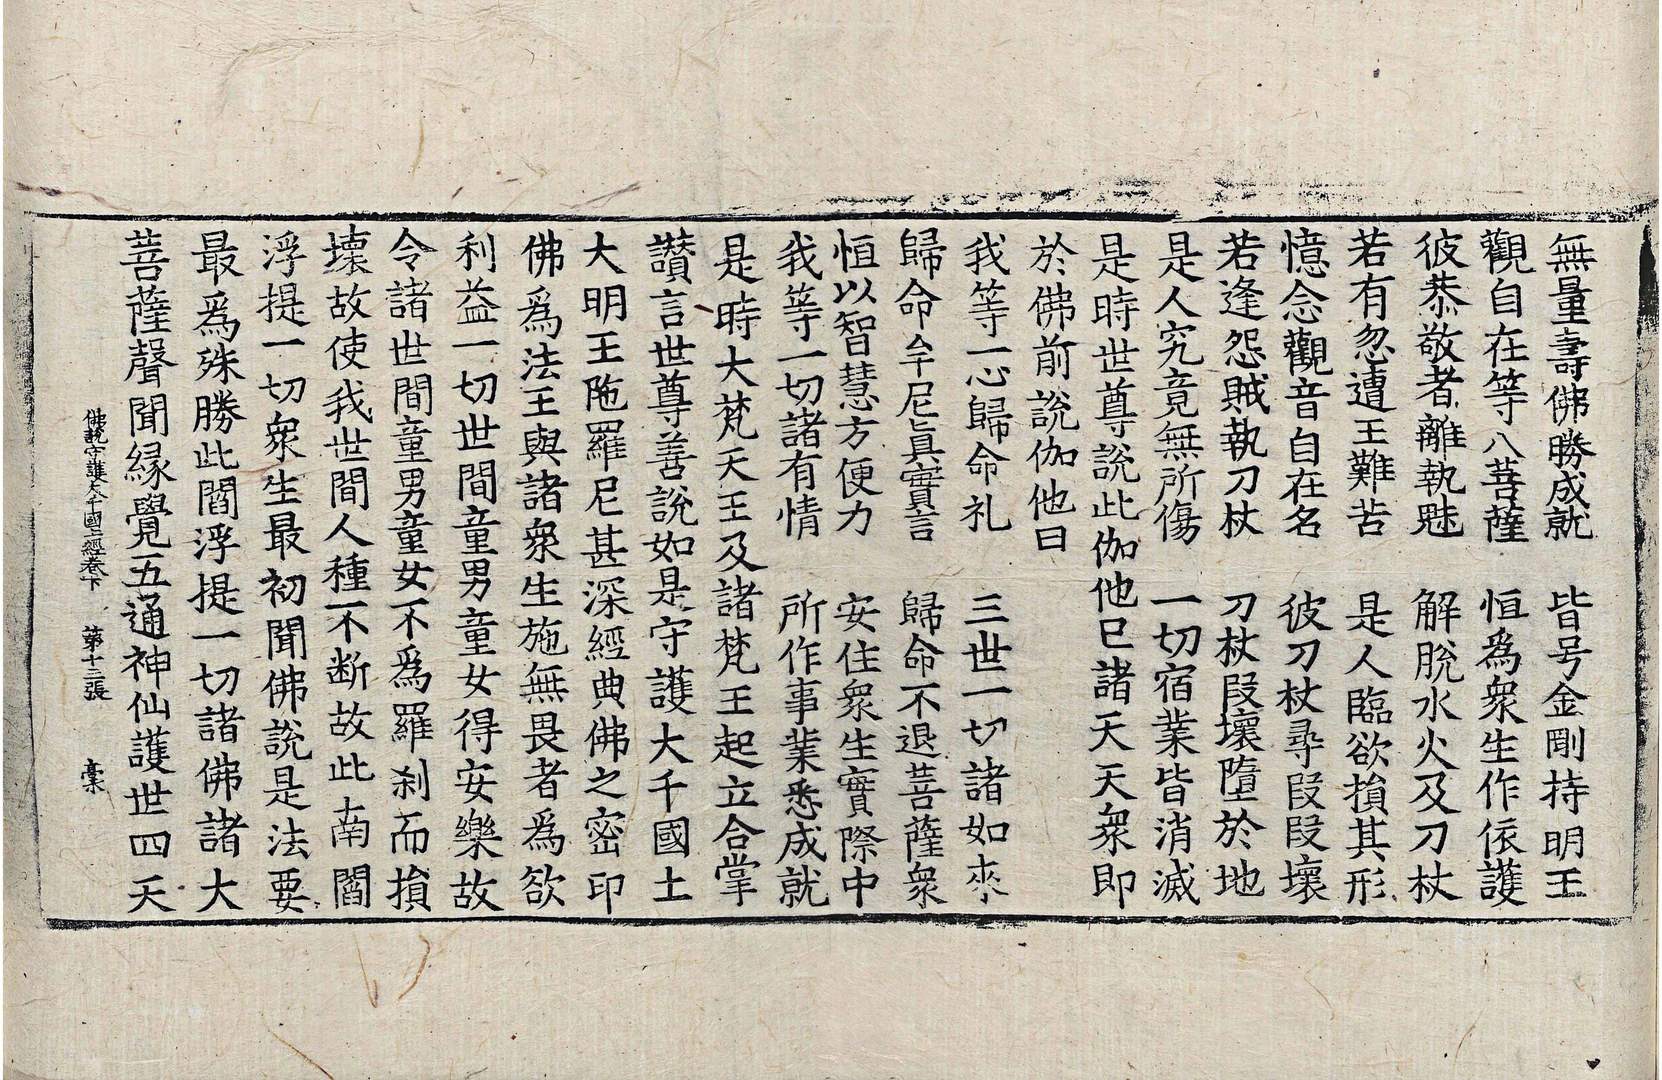 無量壽佛勝成就　皆号金剛持明王
觀自在等八菩薩　恒爲衆生作依護
彼恭敬者離執魅　解脫水火及刀杖
若有忽遭王難苦　是人臨欲損其形
憶念觀音自在名　彼刀杖尋段段壞
若逢怨賊執刀杖　刀杖段壞墮於地
是人究竟無所傷　一切宿業皆消滅
是時世尊說此伽他已諸天天衆即
於佛前說伽他曰
我等一心歸命礼　三世一切諸如來
歸命牟尼眞實言　歸命不退菩薩衆
恒以智慧方便力　安住衆生實際中
我等一切諸有情　所作事業悉成就
是時大梵天王及諸梵王起立合掌
讃言世尊善說如是守護大千國土
大明王陁羅尼甚深經典佛之密印
佛爲法王與諸衆生施無畏者爲欲
利益一切世間童男童女得安樂故
令諸世間童男童女不爲羅刹而損
壞故使我世間人種不断故此南閻
浮提一切衆生最初聞佛說是法要
最爲殊勝此閻浮提一切諸佛諸大
菩薩聲聞緣覺五通神仙護世四天
佛說守護大千國土經卷下　第十三張　槖